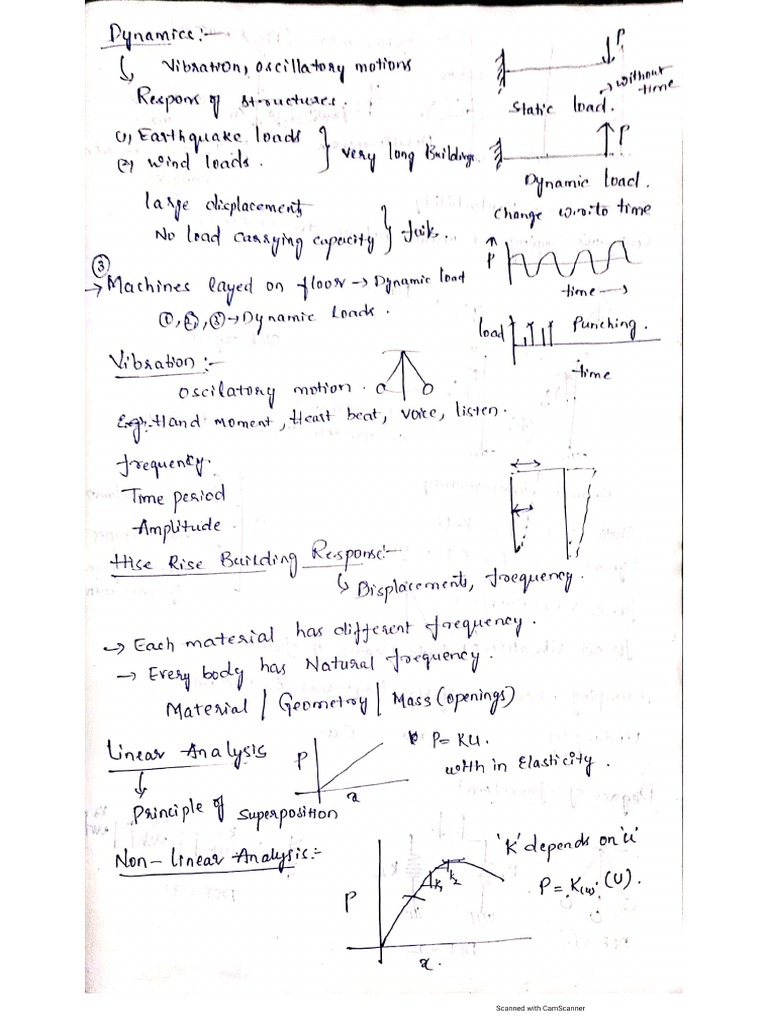 Dynamics :-
Vibration, oscillatory motions
Respons of structures.
P
Static load.
→ without time
(1) Earthquake loads
(2) Wind loads.
} very long Buildings
P
Dynamic load.
Change w.r.to time
large displacements
No load carrying capacity
} fail.
③
→ Machines layed on floor → Dynamic load
①, ②, ③ → Dynamic Loads.
P
time →
load
Punching.
time
Vibration :-
Oscilatory motion.
Eg:- Hand moment, Heart beat, voice, listen.
frequency.
Time period
Amplitude.
Hise Rise Building Response:-
Displacements, frequency.
→ Each material has different frequency.
→ Every body has Natural frequency.
Material / Geometry / Mass (openings)
Linear Analysis
P
x
P = KU.
with in Elasticity.
Principle of superposition
Non-Linear Analysis:-
P
K1
K2
x.
'K' depends on 'u'
P = K(u) (U).
Scanned with CamScanner